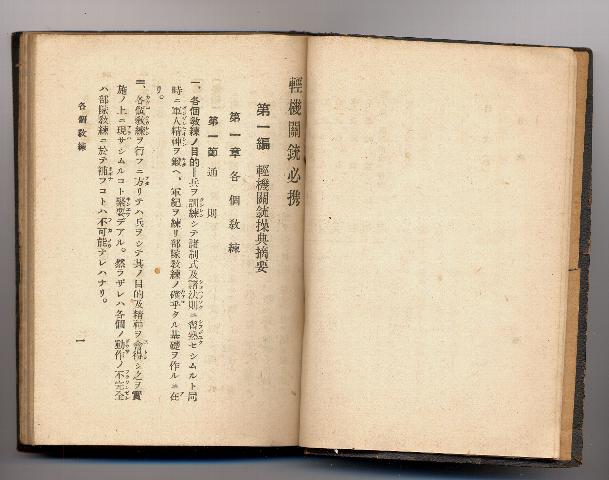 輕機關銃必携
第一編 輕機關銃操典摘要
第一章 各個敎練
第一節 通則
一、各個敎練ノ目的ハ兵ヲ訓練シテ諸制式及諸法則ニ習熟セシムルト同
時ニ軍人精神ヲ鍛ヘ、軍紀ヲ練リ部隊敎練ノ確乎タル基礎ヲ作ルニ在
リ。
二、各個敎練ヲ行フニ方リテハ兵ヲシテ其ノ目的及精神ヲ會得シ之ヲ實
施ノ上ニ現サシムルコト緊要デアル。然ラザレハ各個ノ動作ノ不完全
ハ部隊敎練ニ於テ補フコトハ不可能テレハナリ。
各個敎練
一